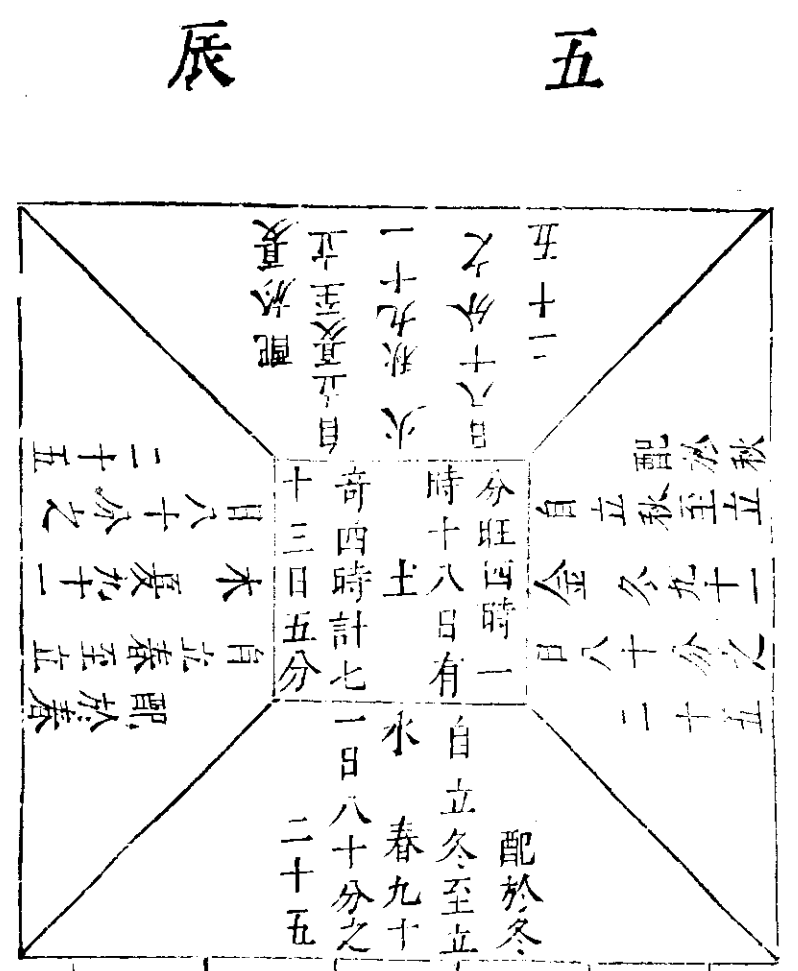 五辰
配於夏
自立夏至立
火 秋九十一
日八十分之
二十五
配於秋
自立秋至立
金 冬九十一
日八十分之
二十五
分旺四時一
時十八日有
土
奇四時計七
十三日五分
配於春
自立春至立
木 夏九十一
日八十分之
二十五
配於冬
自立冬至立
水 春九十
一日八十分之
二十五